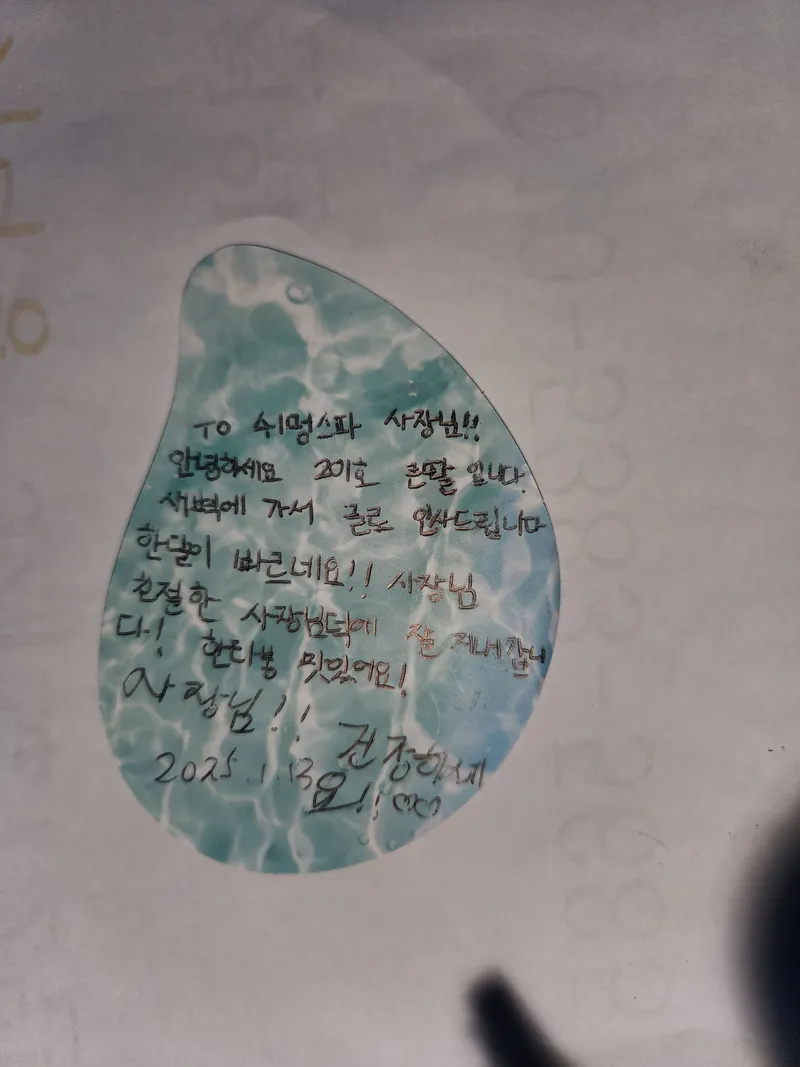 TO 쉬멍스파 사장님!!
안녕하세요 201호 큰딸 입니다.
새벽에 가서 글로 인사드립니다
한달이 빠르네요!! 사장님
친절한 사장님덕에 잘 지내갑니
다! 한라봉 맛있어요!
사장님!! 건강하세
2025.1.13 요!! ♡♡